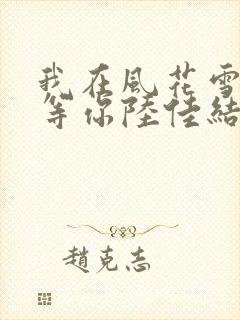 我在風花雪
等你陸佳結
趙克志